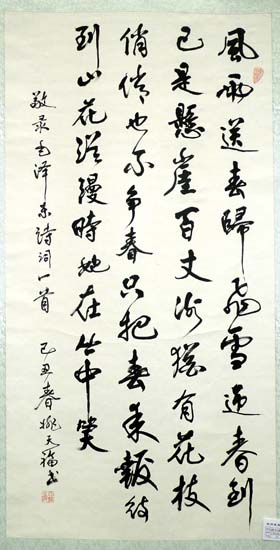 風雨送春歸飛雪迎春到
已是懸崖百丈冰猶有花枝
俏俏也不争春只把春来報待
到山花烂漫時她在丛中笑
敬录毛泽东詩词一首
己丑春姚天福书